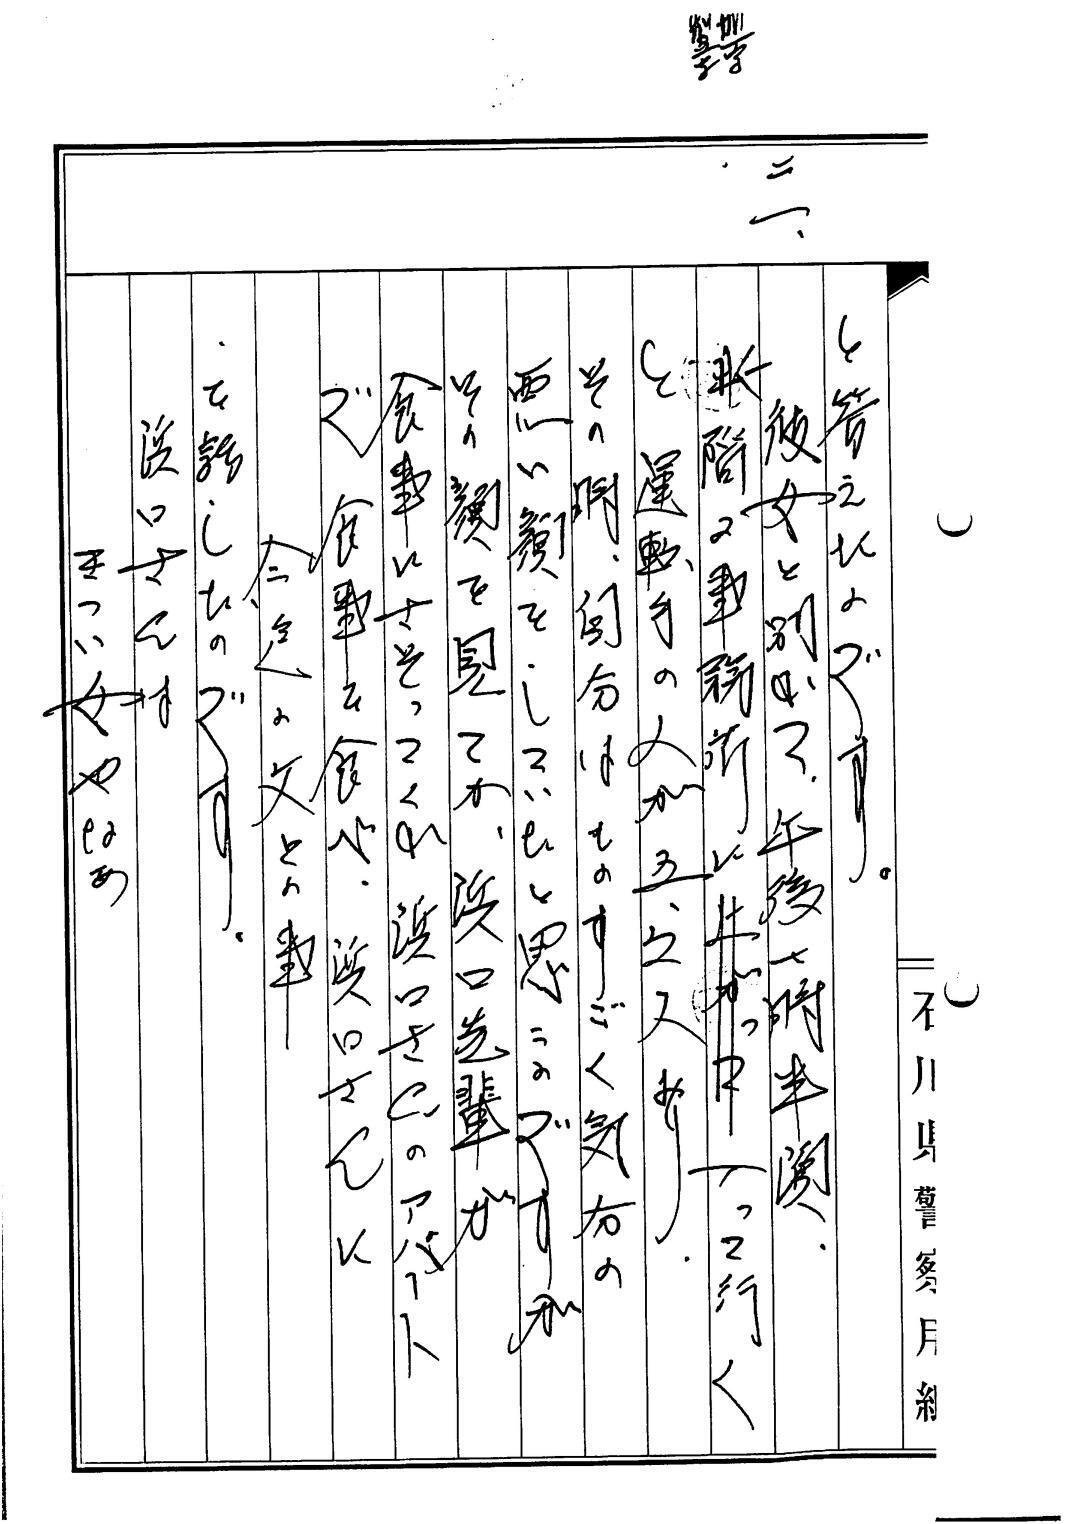 二一、
と答えたのです。
彼女と別れて、午後一時半頃、
の事務所に 行く
と運転手の人が五、六人おり、
その時、自分はものすごく気分の
悪い顔をしていたと思うのですが
その顔を見てか、浜口先輩が
食事にさそってくれ浜口さんのアパート
で食事を食べ、浜口さんに
の文との事
を話したのです。
浜口さんは
きつい女やなあ
石川県警察用紙